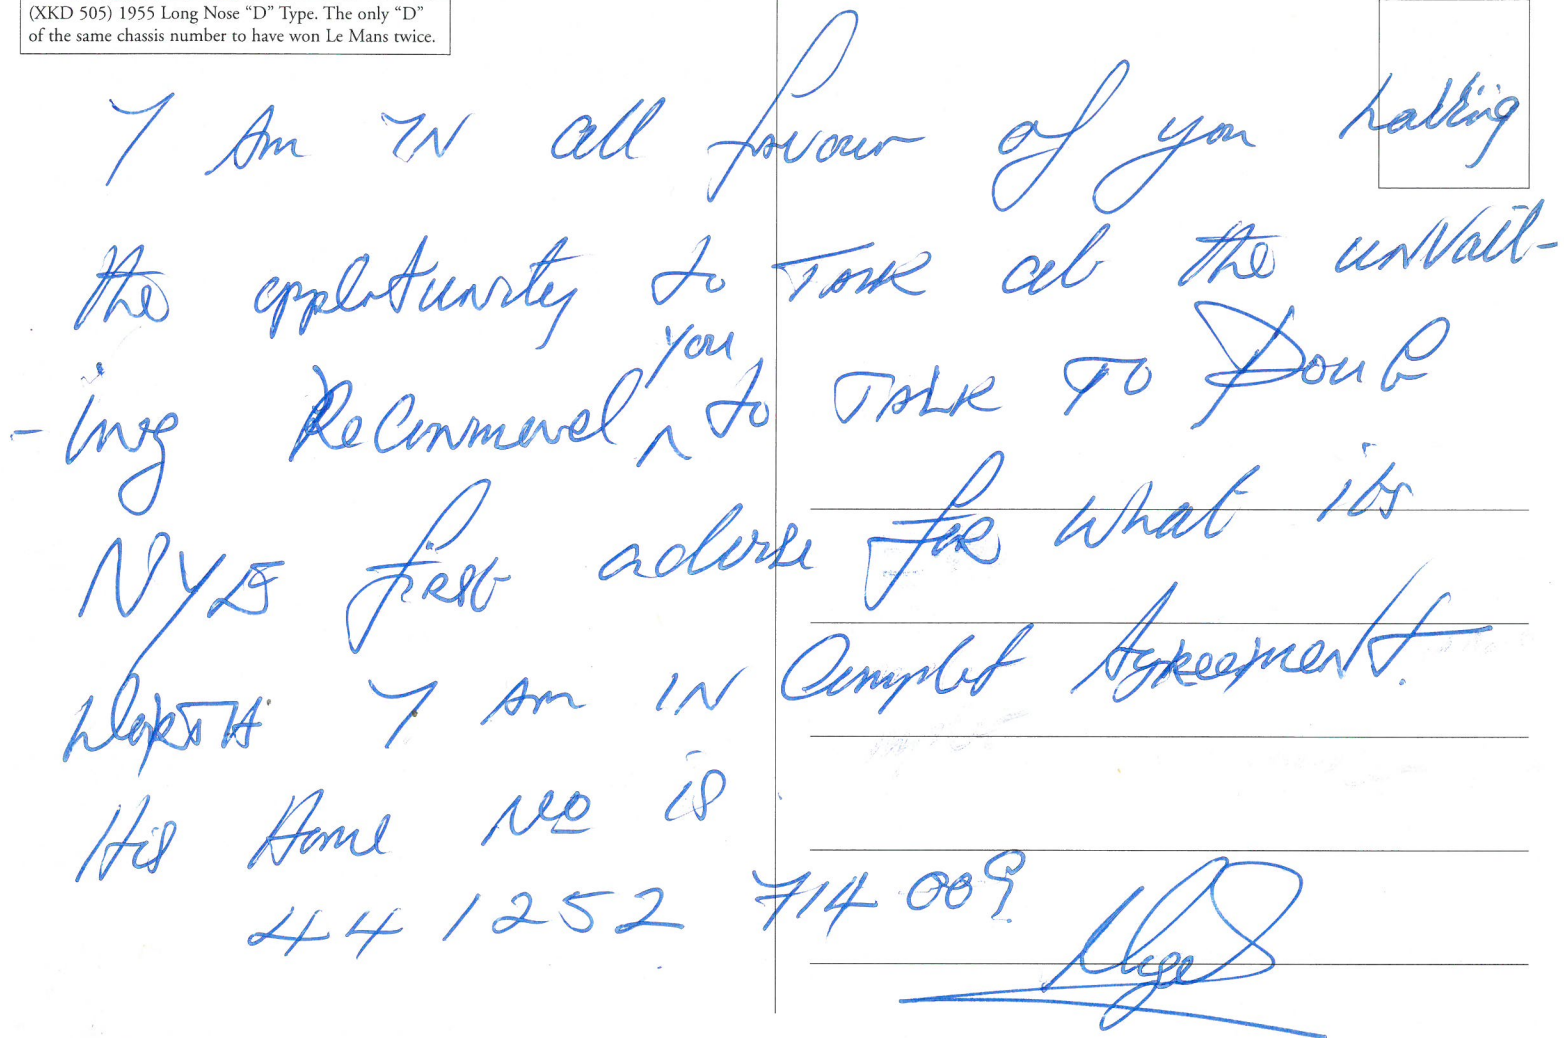 (XKD 505) 1955 Long Nose “D” Type. The only “D”
of the same chassis number to have won Le Mans twice.
I Am IN all favour of you
the to TALK at the unVail-
-ing Recommend you to TALK TO Doug
NYE first for what its
WORTH I Am IN Complet Agreement.
His Home No is
44 1252 714 009
Nigel